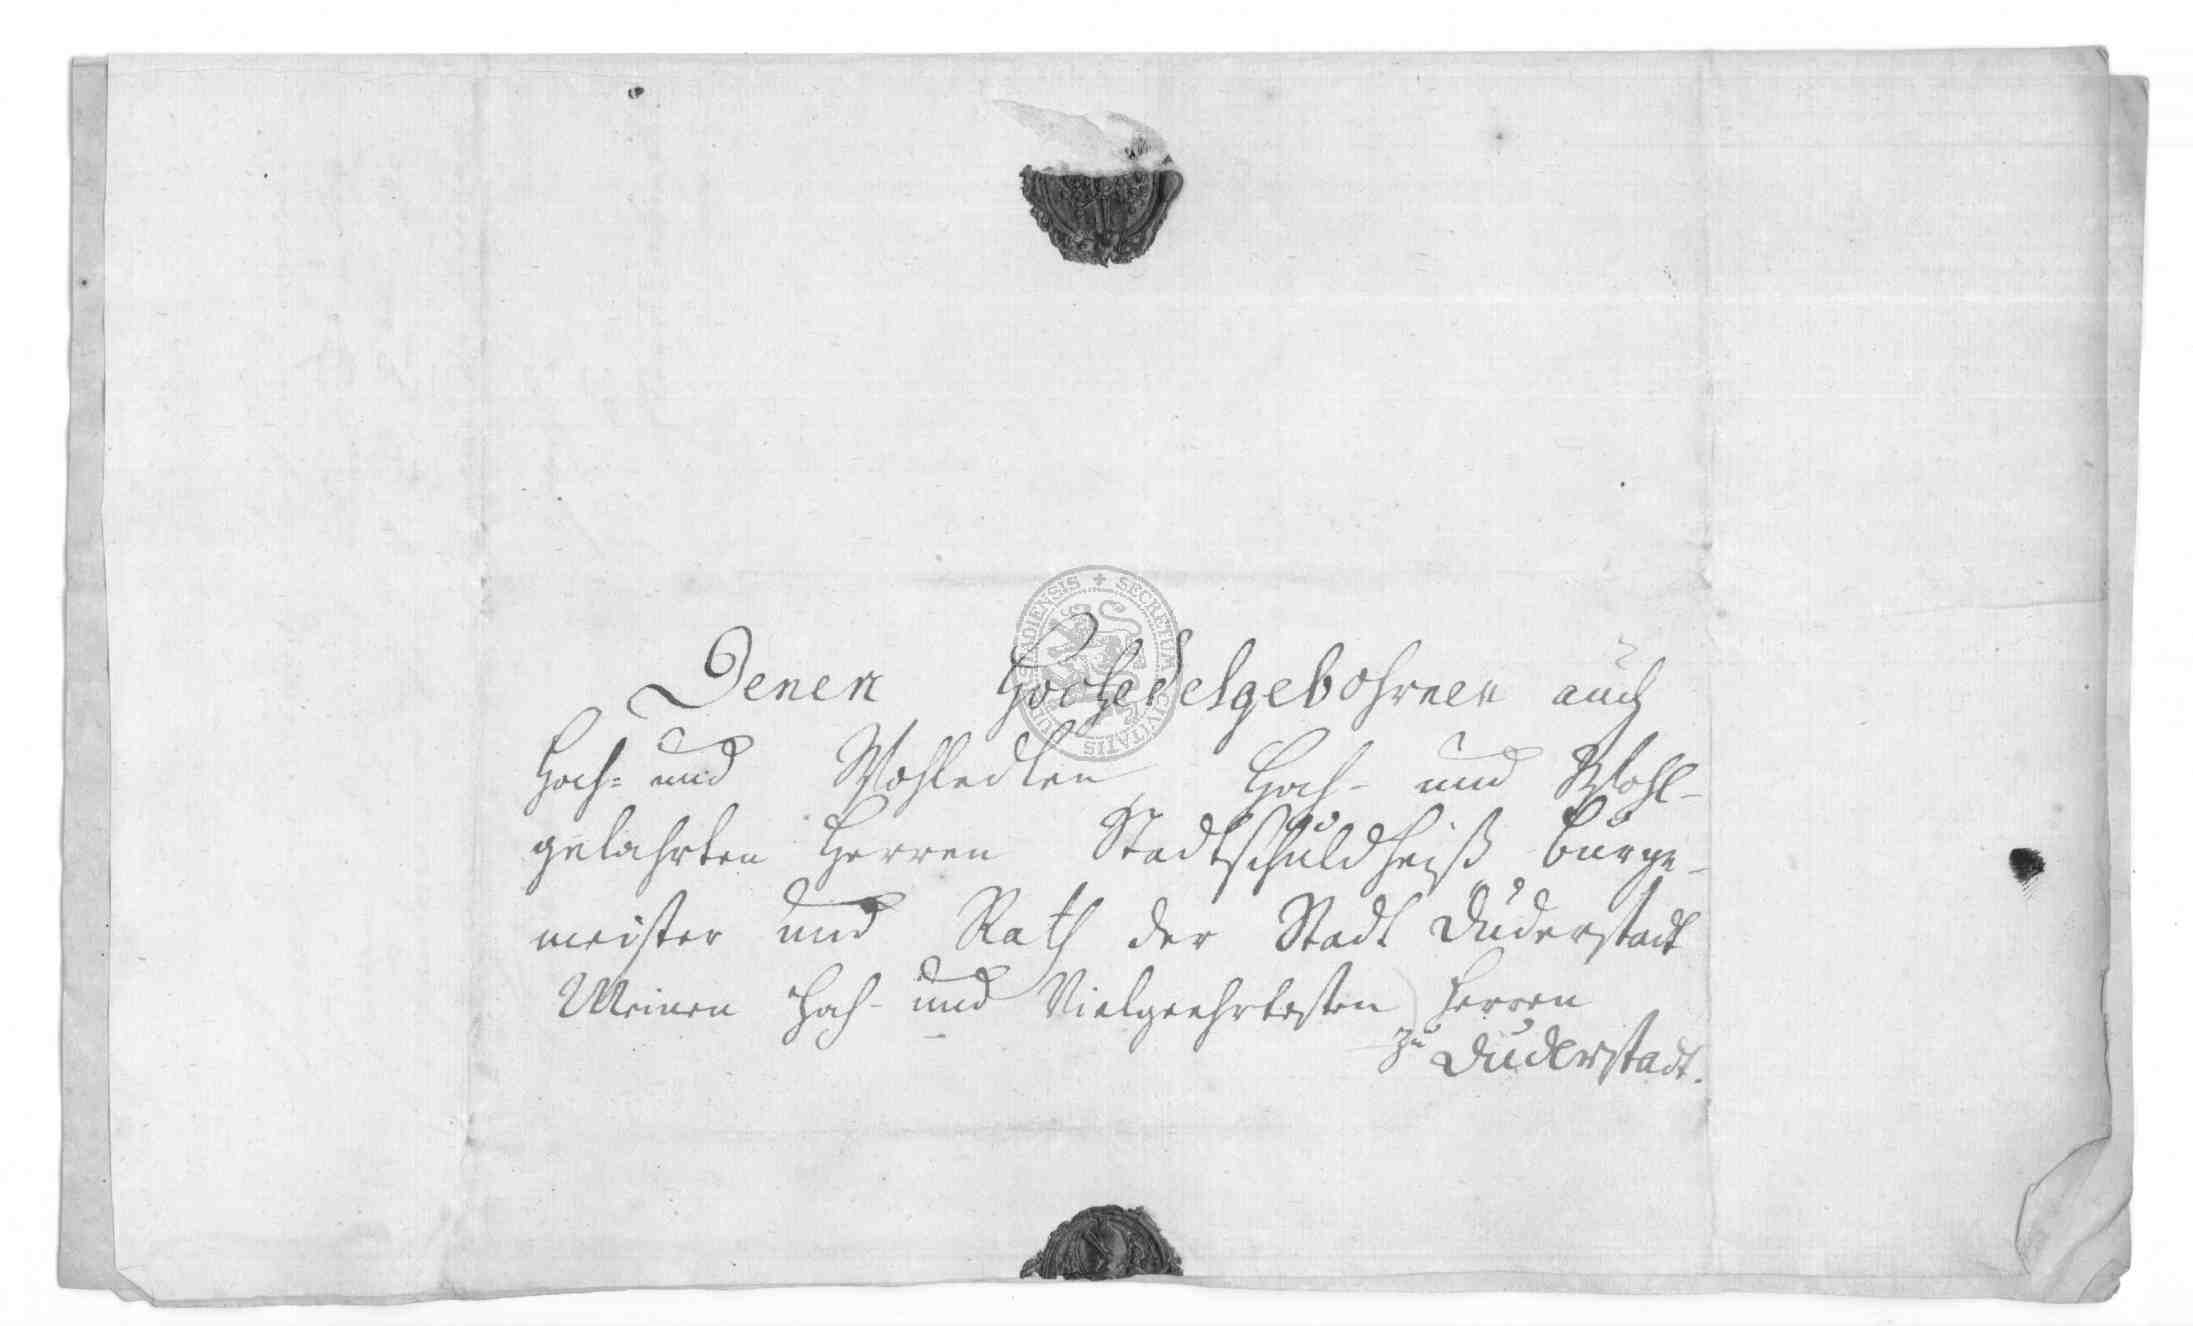 Denen Hochedelgebohrnen auch
Hoch- und Wohledlen, Hoch- und Wohl-
gelahrten Herren Stadtschuldheiß Burge-
meister und Rath der Stadt Duderstadt
Meinen Hoch- und Vielgeehrtesten Herren
zu Duderstadt.